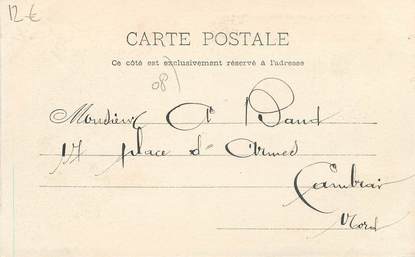 12 €
CARTE POSTALE
Ce côté est exclusivement réservé à l'adresse
08)
Monsieur A Band
17 place d'Armes
Cambrai
Nord